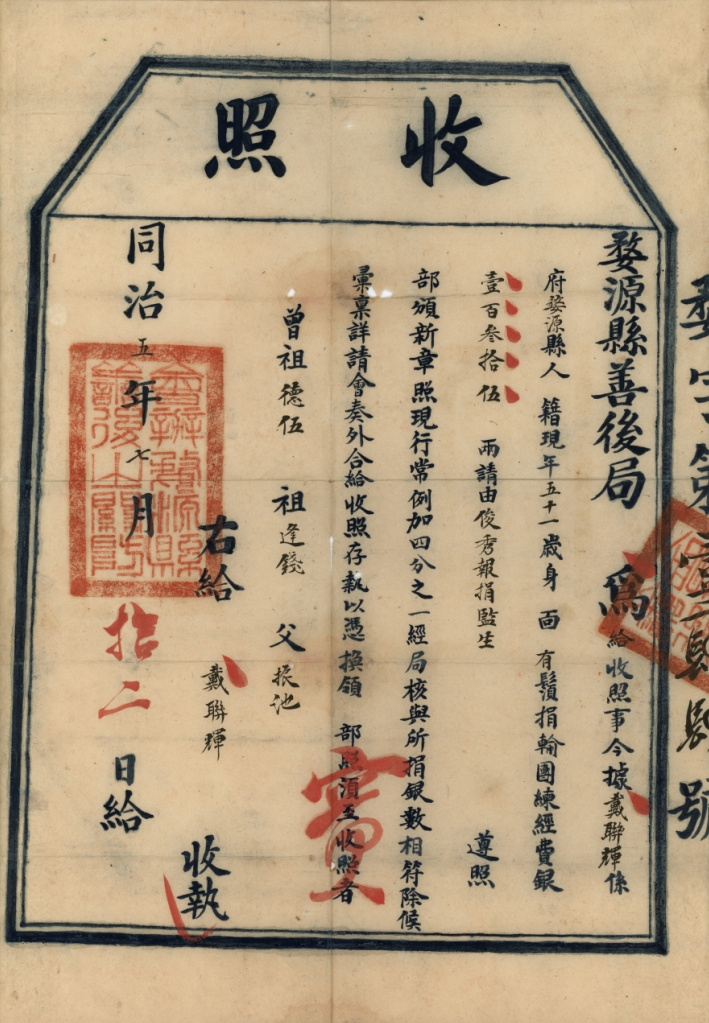 收照
婺源縣善後局 爲給收照事今據戴聯輝係
府婺源縣人 籍現年五十一歲身 面 有鬚捐輸團練經費銀
壹百叁拾伍 兩請由俊秀報捐監生 遵照
部頒新章照現行常例加四分之一經局核與所捐銀數相符除候
彙稟詳請會奏外合給收照存執以憑換領 部照須至收照者
曾祖德伍 祖逢錢 父振池
右給 戴聯輝 收執
同治五年七月拾二日給
實
號